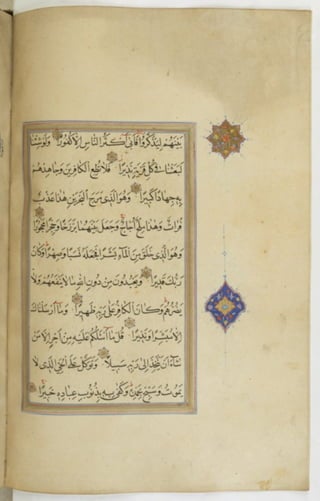 بينهم ليذكروا فابى اكثر الناس الا كفورا ولو شئنا
لبعثنا في كل قرية نذيرا فلا تطع الكافرين وجاهدهم
به جهادا كبيرا وهو الذي مرج البحرين هذا عذب
فرات وهذا ملح اجاج وجعل بينهما برزخا وحجرا محجورا
وهو الذي خلق من الماء بشرا فجعله نسبا وصهرا وكان
ربك قديرا ويعبدون من دون الله ما لا ينفعهم ولا
يضرهم وكان الكافر على ربه ظهيرا وما ارسلناك
الا مبشرا ونذيرا قل ما اسئلكم عليه من اجر الا من
شاء ان يتخذ الى ربه سبيلا وتوكل على الحي الذي لا
يموت وسبح بحمده وكفى به بذنوب عباده خبيرا